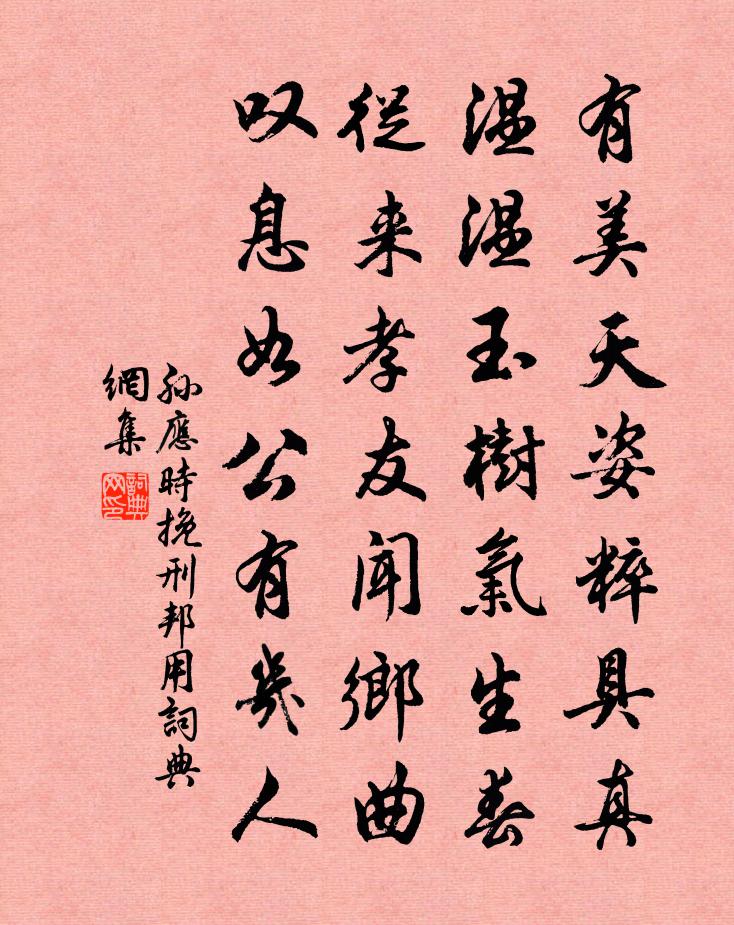 有美天姿粹具真
温温玉樹氣生春
從来孝友聞鄉曲
叹息如公有幾人
孫應時挽刑邦用詞典
網集
詞典網印